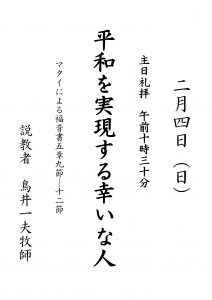 二月四日（日）
主日礼拝　午前十時三十分
平和を実現する幸いな人
マタイによる福音書五章九節―十二節
説教者　鳥井一夫牧師